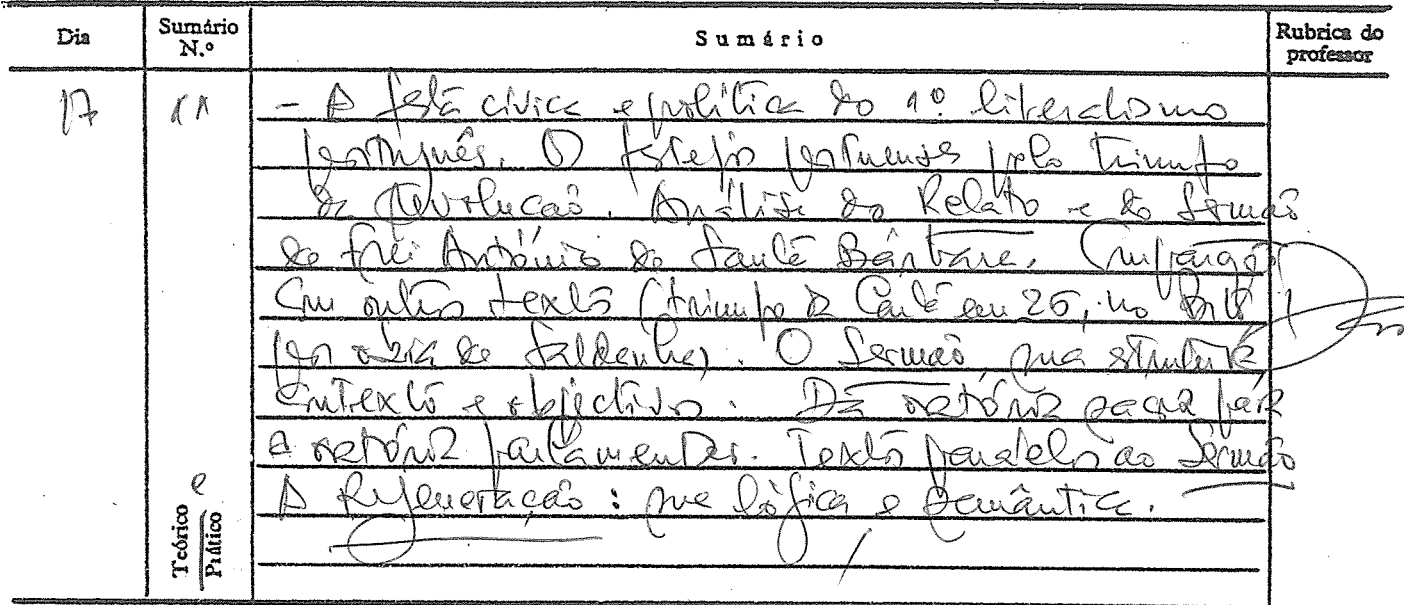 Dia Sumário N.º Sumário Rubrica do professor
17 11 - A festa cívica e política do 1º liberalismo
português. O festejo portuense pelo triunfo
da Revolução. Análise do Relato e do Sermão
de Frei António de Santa Bárbara. Comparação
com outros textos (triunfo da Carta em 26, no
por de Saldanha). O Sermão, sua estrutura,
contexto e objectivos. Da retórica sacra para
a retórica parlamentar. Textos paralelos ao Sermão
A Regeneração: sua lógica e semântica.
Teórico e Prático